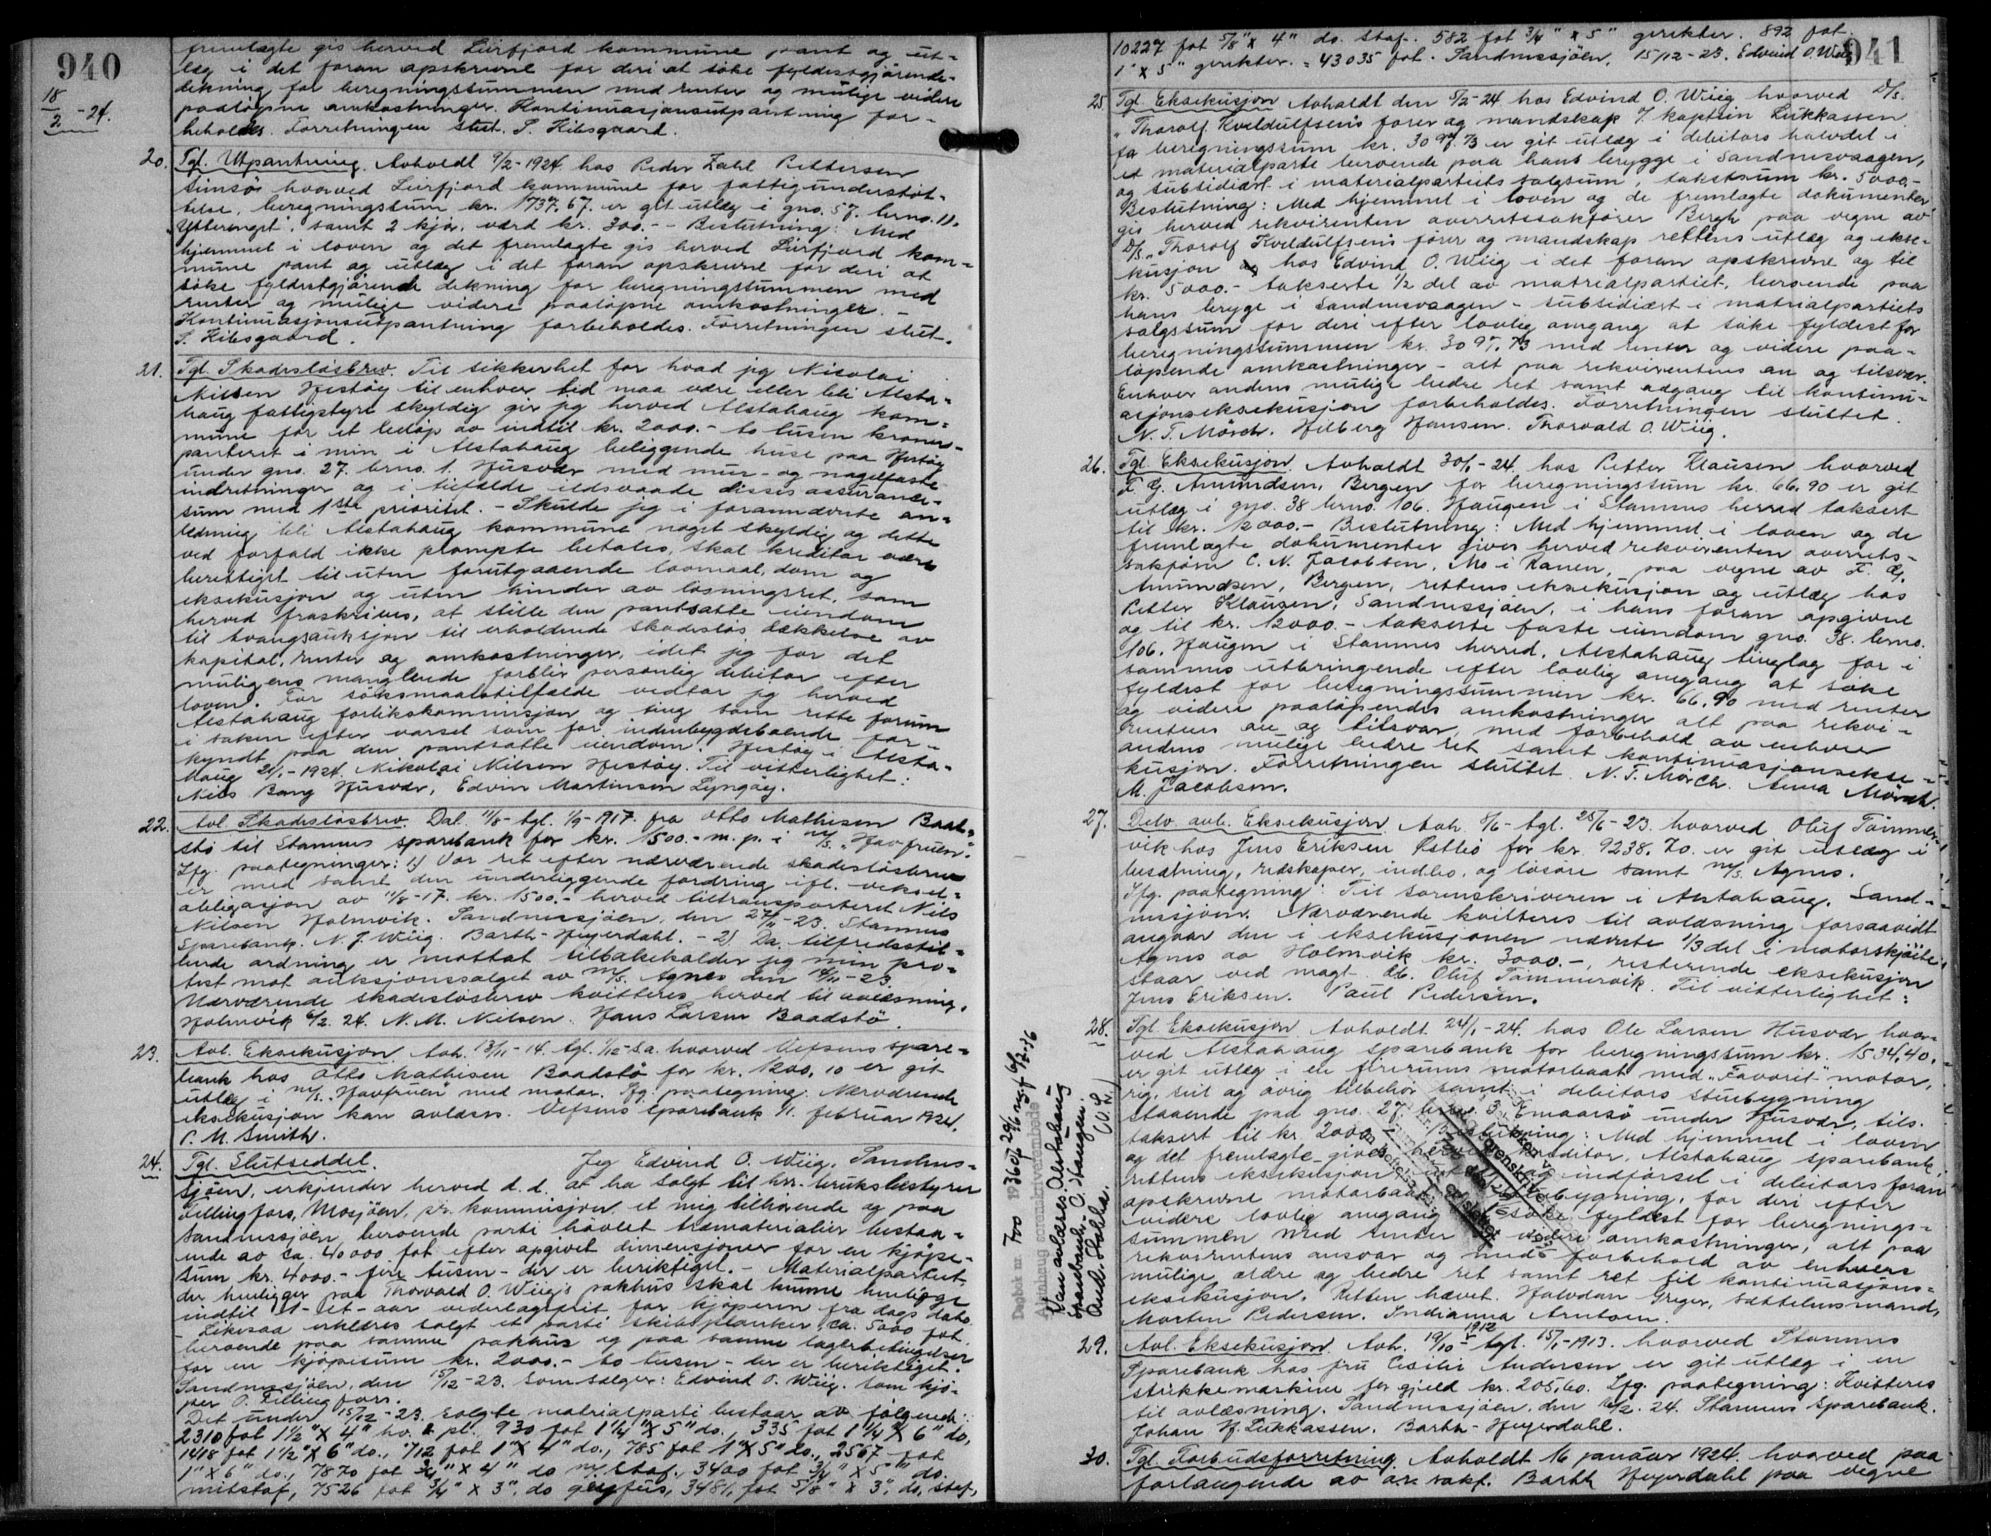 940
18/2 - 24.
fremlagte gis herved Leirfjord kommune pant og ut-
læg i det foran opskrevne for deri at söke fyldestgjörende
dekning for beregningssummen med renter og mulige videre
paalöpne omkostninger. Kontinuasjonsutpantning for-
beholdes. Forretningen slut. S. Hibsgaard.
20. Tgl. Utpantning. Avholdt 9/2 - 1924 hos Peder Zahl Pettersen
Simsö hvorved Leirfjord kommune for fattigunderstöt-
telse, beregningssum kr. 1737.67. er git utlæg i gno. 57. brno. 11.
"Ytterenget", samt 2 kjör, værd kr. 300.- - Beslutning: Med
hjemmel i loven og det fremlagte gis herved Leirfjord kom-
mune pant og utlæg i det foran opskrevne for deri at
söke fyldestgjörende dekning for beregningssummen med
renter og mulige videre paalöpne omkostninger. -
Kontinuasjonsutpantning forbeholdes. Forretningen slut.
S. Hibsgaard.
21. Tgl. Skadeslösbrev. Til sikkerhet for hvad jeg Nicolai
Nilsen Hestöy til enhver tid maa være eller bli Alsta-
haug fattigstyre skyldig gir jeg herved Alstahaug kom-
mune for et belöp av indtil kr. 2000.- to tusen kroner -
panteret i min i Alstahaug beliggende huse paa Hestöy
under gno. 27. brno. 1. Husvær med mur- og nagelfaste
indretninger og i tilfælde ildsvaade disses assurance-
sum med 1ste prioritet. - Skulde jeg i forannævnte an-
ledning bli Alstahaug kommune noget skyldig og dette
ved forfald ikke prompte betales, skal kreditor være
berettiget til uten forutgaaende lovmaal, dom og
eksekusjon og uten hinder av lösningsret, som
herved fraskrives, at stille den pantsatte eiendom
til tvangsauksjon til erholdende skadeslös dækkelse av
kapital, renter og omkostninger, idet jeg for det
muligens manglende forblir personlig debitor efter
loven. For söksmaalstilfælde vedtar jeg herved
Alstahaug forlikskommisjon og ting som rette forum
i saken efter varsel som for indenbygdsboende for-
kyndt paa den pantsatte eiendom. Hestöy i Alsta-
haug 24/1 - 1924. Nikolai Nilsen Hestöy. Til vitterlighet:
Nils Bang Husvær, Edvin Martinsen Lyngöy.
22. Avl. Skadeslösbrev. Dat. 11/8 - tgl. 1/9 - 1917. fra Otto Mathisen Baad-
stö til Stamnes sparebank for kr. 1500.- m. p. i m/s. "Havfruen".
Lfg. paategninger: 1) Vor ret efter nærværende skadeslösbrev
er med samt den underliggende fordring ifl. veksel-
obligasjon av 11/8 - 17. kr. 1500.- herved tiltransporteret Nils
Nilsen Holmvik. Sandnessjöen, den 27/11 - 23. Stamnes
Sparebank. N. J. Wiig. Barth - Heyerdahl. - 2) Da tilfredsstil-
lende ordning er mottat tilbakekalder jeg min pro-
test mot auksjonssalget av m/s. Agnes den 14/11 - 23.
Nærværende skadeslösbrev kvitteres herved til avlæsning.
Holmvik 6/2. 24. N. M. Nilsen. Hans Larsen Baadstö.
23. Avl. Eksekusjon. Avh. 13/11 - 14. tgl. 1/12 - s.a. hvorved Vefsens spare-
bank hos Otto Mathisen Baadstö for kr. 1200,10 er git
utlæg i m/s. "Havfruen" med motor. Lfg. paategning: Nærværende
eksekusjon kan avlæses. Vefsens Sparebank 11. februar 1924.
P. M. Smith.
24. Tgl. Slutseddel. Jeg Edvind O. Wiig, Sandnes-
sjöen, erkjender herved d. d. at ha solgt til hr. bruksbestyrer
Tellingfors, Mosjöen, pr. kommisjon, et mig tilhörende og paa
Sandnessjöen beroende parti hövlet træmaterialier bestaa-
ende av ca. 40000 fot efter opgivet dimensjoner for en kjöpe-
sum kr. 4000.- fire tusen - der er beriktiget. - Materialpartiet
der henligger paa Thorvald O. Wiig's pakhus skal kunne henligge
indtil 1 - et - aar vederlagsfrit for kjöperen fra dags dato.
Likesaa erklæres solgt et parti skibsplanker ca. 5000 fot
beroende paa samme pakhus og paa samme lagerbetingelser
for en kjöpesum kr. 2000.- to tusen - der er beriktiget.
Sandnessjöen, den 15/12 - 23. Som sælger: Edvind O. Wiig. Som kjö-
per O. Tellingfors.
Det under 15/12 - 23. solgte matrialparti bestaar av fölgende:
2310 fot 1 1/2" X 4" hv. pl. 930 fot 1 1/4" X 5" do., 335 fot 1 1/4" X 6" do,
1418 fot 1 1/2" X 6" do., 712 fot 1" X 4" do., 785 fot 1" X 5" do., 2567 fot
1" X 6" do., 7870 fot 3/4" X 4" do m/ staf., 3400 fot 3/4" X 5" do.
m/staf, 7526 fot 3/4" X 3". do 3481, fot 5/8" X 3". do. staf,
941
10227 fot 5/8" X 4" do. staf. 582 fot 3/4" X 5" gerikter. 892 fot
1" X 5" gerikter. = 43035 fot. Sandnessjöen, 15/12 - 23. Edvind O. Wiig
25. Tgl. Eksekusjon Avholdt den 5/2 - 24 hos Edvind O. Wiig hvorved D/S.
"Thorolf Kveldulfsen's förer og mandskap v/ kaptein Lükkassen
fa beregningssum kr. 3097.73 er git utlæg i debitors halvdel i
et materialparti beroende paa hans brygge i Sandnesvaagen,
og subsidiært i materialpartiets salgsum, takstsum kr. 5000,-
Beslutning: Med hjemmel i loven og de fremlagte dokumenter
gis herved rekvirenten overretssakförer Bergh paa vegne av
D/S. "Thorolf Kveldulfsen's förer og mandskap rettens utlæg og ekse-
kusjon hos Edvind O. Wiig i det foran opskrevne og til
kr. 5000.- takserte 1/2 del av matrialpartiet, beroende paa
hans brygge i Sandnesvaagen - subsidiært i matrialpartiets
salgssum for deri efter lovlig omgang at söke fyldest for
beregningssummen kr. 3097.73 med renter og videre paa-
löpende omkostninger - alt paa rekvirentens an og tilsvar.
Enhver andens mulige bedre ret samt adgang til kontinu-
asjonseksekusjon forbeholdes. Forretningen sluttet.
N. T. Mörch. Hilberg Hansen. Thorvald O. Wiig.
26. Tgl. Eksekusjon. Avholdt 30/1 - 24. hos Petter Klausen hvorved
F. G. Amundsen, Bergen for beregningssum kr. 66.90 er git
utlæg i gno. 38 brno. 106. Haugen i Stamnes herred taksert
til kr. 12000.- Beslutning: Med hjemmel i loven og de
fremlagte dokumenter gives herved rekvirenten overrets-
sakförer C. N. Jacobsen, Mo i Ranen, paa vegne av F. G.
Amundsen, Bergen, rettens eksekusjon og utlæg hos
Petter Klausen, Sandnessjöen, i hans foran opgivne
og til kr. 12000.- takserte faste eiendom gno. 38. brno.
106. Haugen i Stamnes herred, Alstahaug tinglag for i
sammes utbringende efter lovlig omgang at söke
fyldest for beregningssummen kr. 66.90 med renter
og videre paalöpendes omkostninger alt paa rekvi-
rentens an og tilsvar, med forbehold av enhver
andens mulige bedre ret samt kontinuasjonsekse-
kusjon. Forretningen sluttet. N. T. Mörch. Anna Mörch.
M. Jacobsen.
27. Delv. avl. Eksekusjon Avh. 8/6 - tgl. 25/6 - 23. hvorved Oluf Tömmer-
vik hos Jens Eriksen Estbö for kr. 9238.70. er git utlæg i
besætning, redskaper, indbo. og lösöre samt m/s. Agnes.
Lfg. paategning: Til sorenskriveren i Alstahaug. Sand-
nessjöen. Nærværende kvitteres til avlæsning forsaavidt
angaar den i eksekusjonen nævnte 1/3 del i motorskjöite
Agnes av Holmvik kr. 3000.-, resterende eksekusjon
staar ved magt. Oluf Tömmervik. Til vitterlighet:
Jens Eriksen. Paul Pedersen.
28. Tgl. Eksekusjon Avholdt 24/1 - 24. hos Ole Larsen Husvær hvor-
ved Alstahaug sparebank for beregningssum kr. 1534,40.
er git utlæg i en motorbaat med "Favorit" motor,
rig, seil og övrig tilbehör samt i debitors stuebygning
staaende paa gno. 27. brno. 3 Emaarsö under Husvær, tils.
taksert til kr. 2000 Beslutning: Med hjemmel i loven
og det fremlagte gives herved kreditor, Alstahaug sparebank
rettens eksekusjon og indförsel i debitors foran
opskrevne motorbaat stuebygning, for deri efter
videre lovlig omgang at söke fyldest for beregnings-
summen med renter videre omkostninger, alt paa
rekvirentens ansvar og med forbehold av enhvers
mulige ældre og bedre ret samt ret til kontinuasjons-
eksekusjon. Retten hævet. Halvdan Greger, sættelensmand,
Morten Pedersen. Indianna Arntsen.
29. Avl. Eksekusjon. Avh. 19/10 - 1912 tgl. 15/1 - 1913. hvorved Stamnes
Sparebank hos fru Cesilie Andersen er git utlæg i en
strikkemaskine for gjeld kr. 205,60. Lfg. paategning: Kvitteres
til avlæsning. Sandnessjöen, den 2. 24. Stamnes Sparebank.
Johan H. Lükkassen. Barth - Heyerdahl.
30. Tgl. Forbudsforretning. Avholdt 16 januar 1924. hvorved paa
forlangende av o.r. sakf. Barth Heyerdahl paa vegne
Dagbok nr. 700 19 36
Alstahaug sorenskriverembede
Kan avlæses Alstahaug
Sparebank. C. Haugen.
And. Halla.